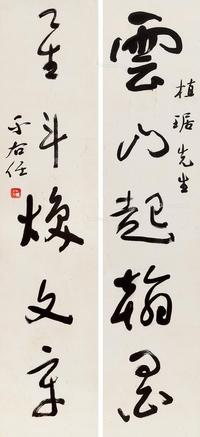 植琚先生
雲山起翰墨
星斗煥文章
于右任